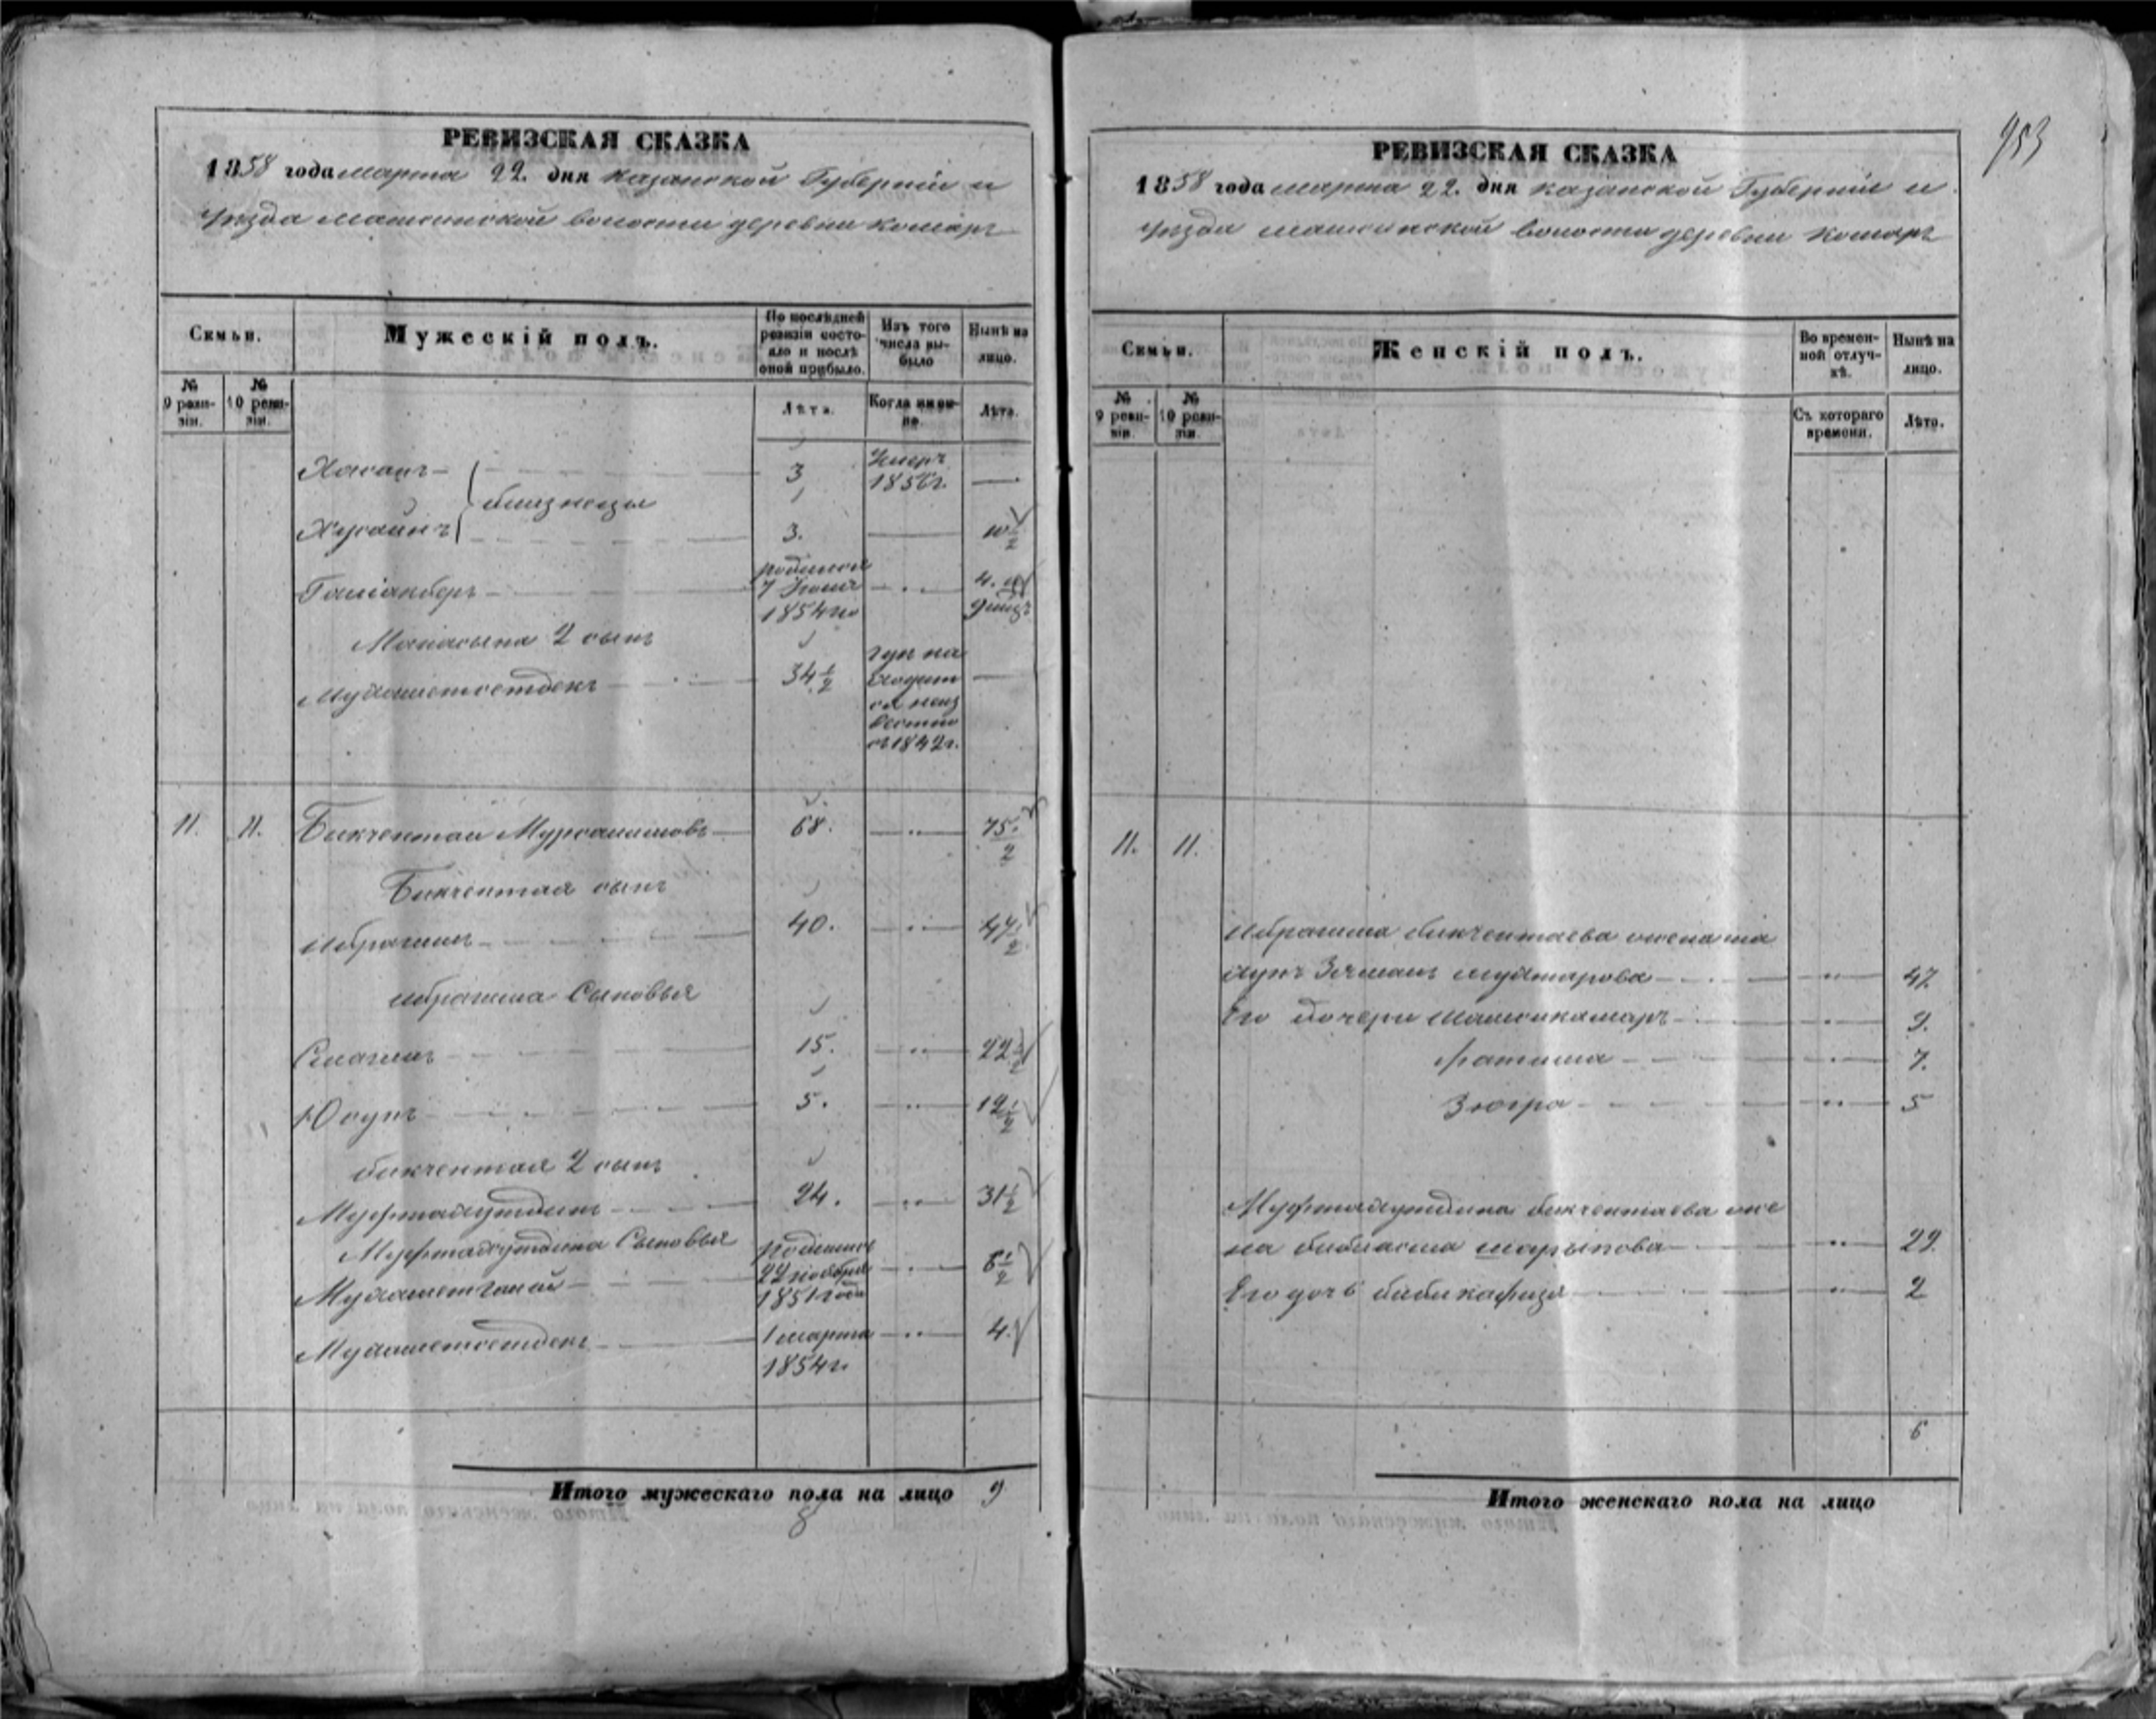 РЕВИЗСКАЯ СКАЗКА
1858 года марта 22. дня казанской Губерніи и
уѣзда машинской волости деревни комаръ
Семьи.
Мужескій полъ.
По послѣдней ревизіи состояло и послѣ оной прибыло.
Изъ того числа выбыло
Нынѣ на лицо.
№ 9 ревизіи.
№ 10 ревизіи.
Лѣта.
Когда именно.
Лѣта.
Хасанъ 3 умеръ 1856г. —
близнецы
Хусаинъ 3. 10 1/2
родился 7 Іюня 1854го 4. 9 мцъ
2 сынъ
Мухаметзянъ 34 1/2 находится с 1842г. —
11. 11. Бикчентай 68. 75 1/2
Бикчентая сынъ
Ибрагимъ 40. 47 1/2
Ибрагима Сыновья
Смагилъ 15. 22 1/2
Юсупъ 5. 12 1/2
бикчентая 2 сынъ
Мифтахутдинъ 24. 31 1/2
Мифтахутдина Сыновья
родился 22 ноября 1851 года 6 1/2
1 марта 1854го 4.
Итого мужескаго пола на лицо 9
8
953
РЕВИЗСКАЯ СКАЗКА
1858 года марта 22. дня казанской Губерніи и
уѣзда машинской волости деревни комаръ
Семьи.
Женскій полъ.
Во временной отлучкѣ.
Нынѣ на лицо.
№ 9 ревизіи.
№ 10 ревизіи.
Съ котораго времени.
Лѣта.
11. 11.
Ибрагима бикчентаева жена
мухтарова 47.
Его дочери 9.
Фатима 7.
Зюгра 5
Мифтахутдина бикчентаева же
на шарыпова 29.
Его дочь бибикафизя 2
6
Итого женскаго пола на лицо